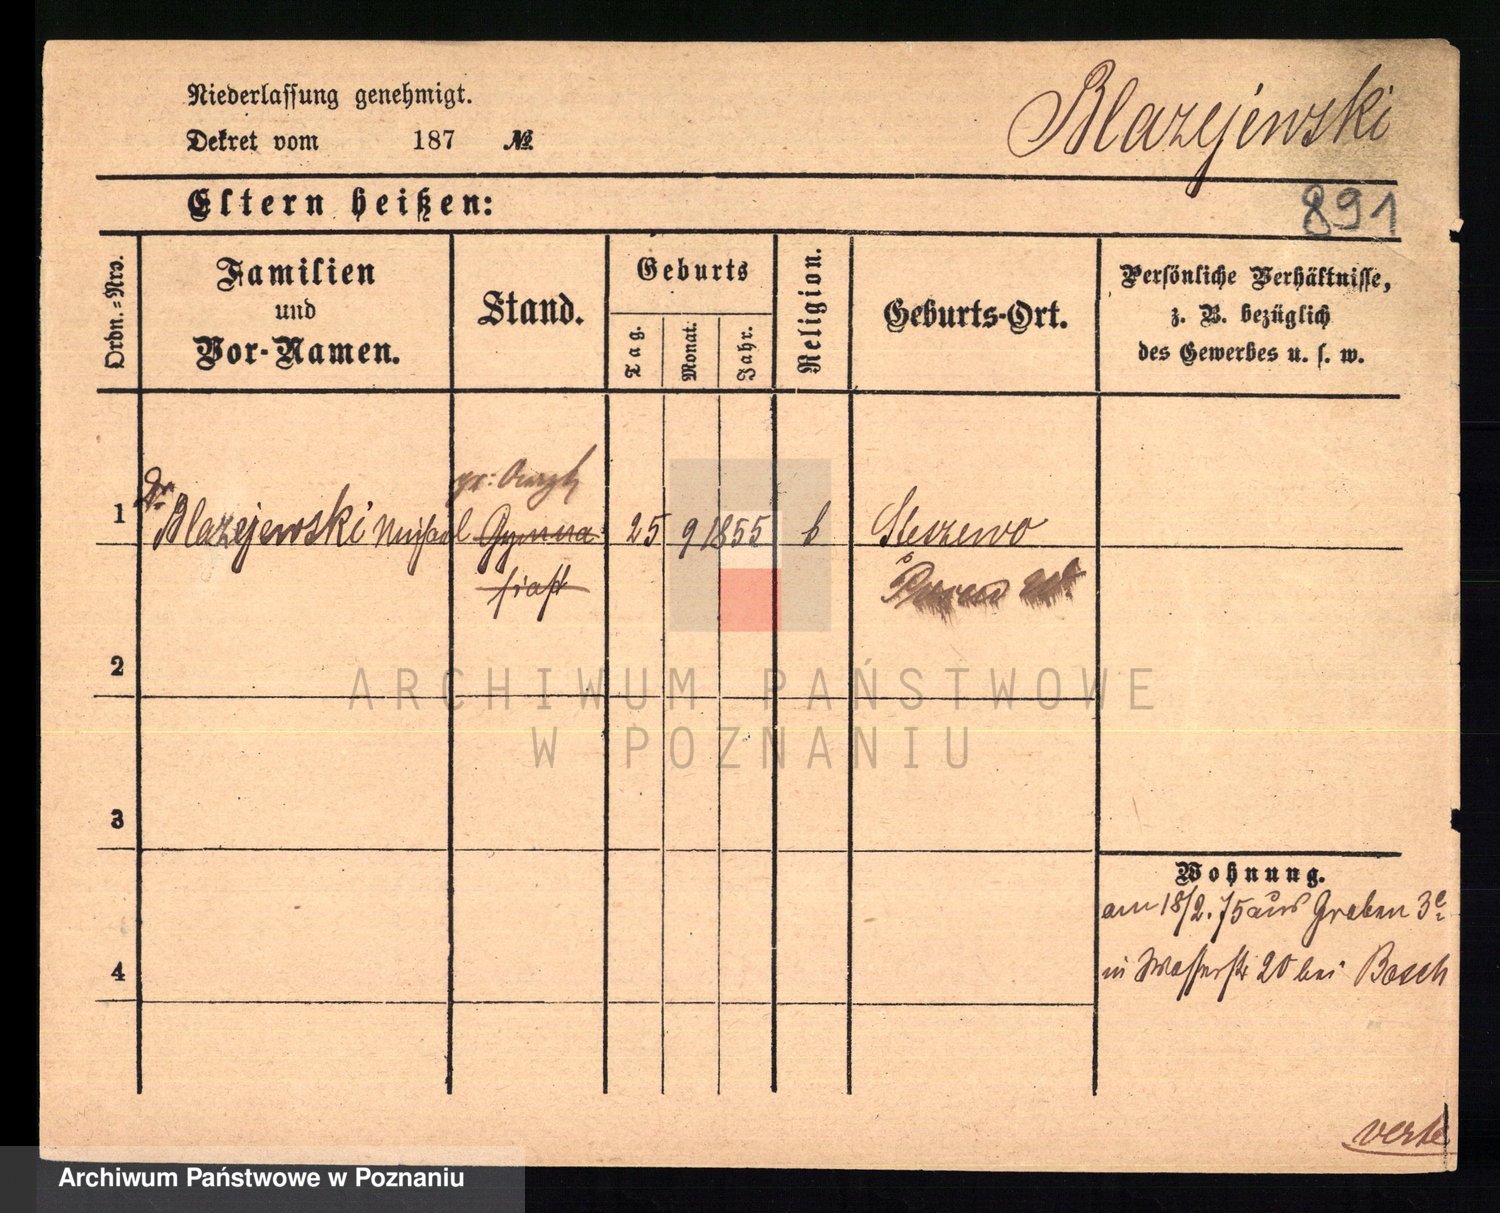 Niederlassung genehmigt.
Dekret vom 187 №
Blazejewski
Eltern heißen:
891
Ordn.-Nro.
Familien
und
Vor-Namen.
Stand.
Geburts
Tag.
Monat.
Jahr.
Religion.
Geburts-Ort.
Persönliche Verhältnisse,
z. B. bezüglich
des Gewerbes u. s. w.
Dr
pr:
1 Blazejewski Gymna 25 9 1855 k Steszewo
siast
Posen
2
ARCHIWUM PAŃSTWOWE
W POZNANIU
3
Wohnung.
am 18/2. 75 aus Graben 3c
4
in Wasserstr 20 bei Bosch
verte
Archiwum Państwowe w Poznaniu